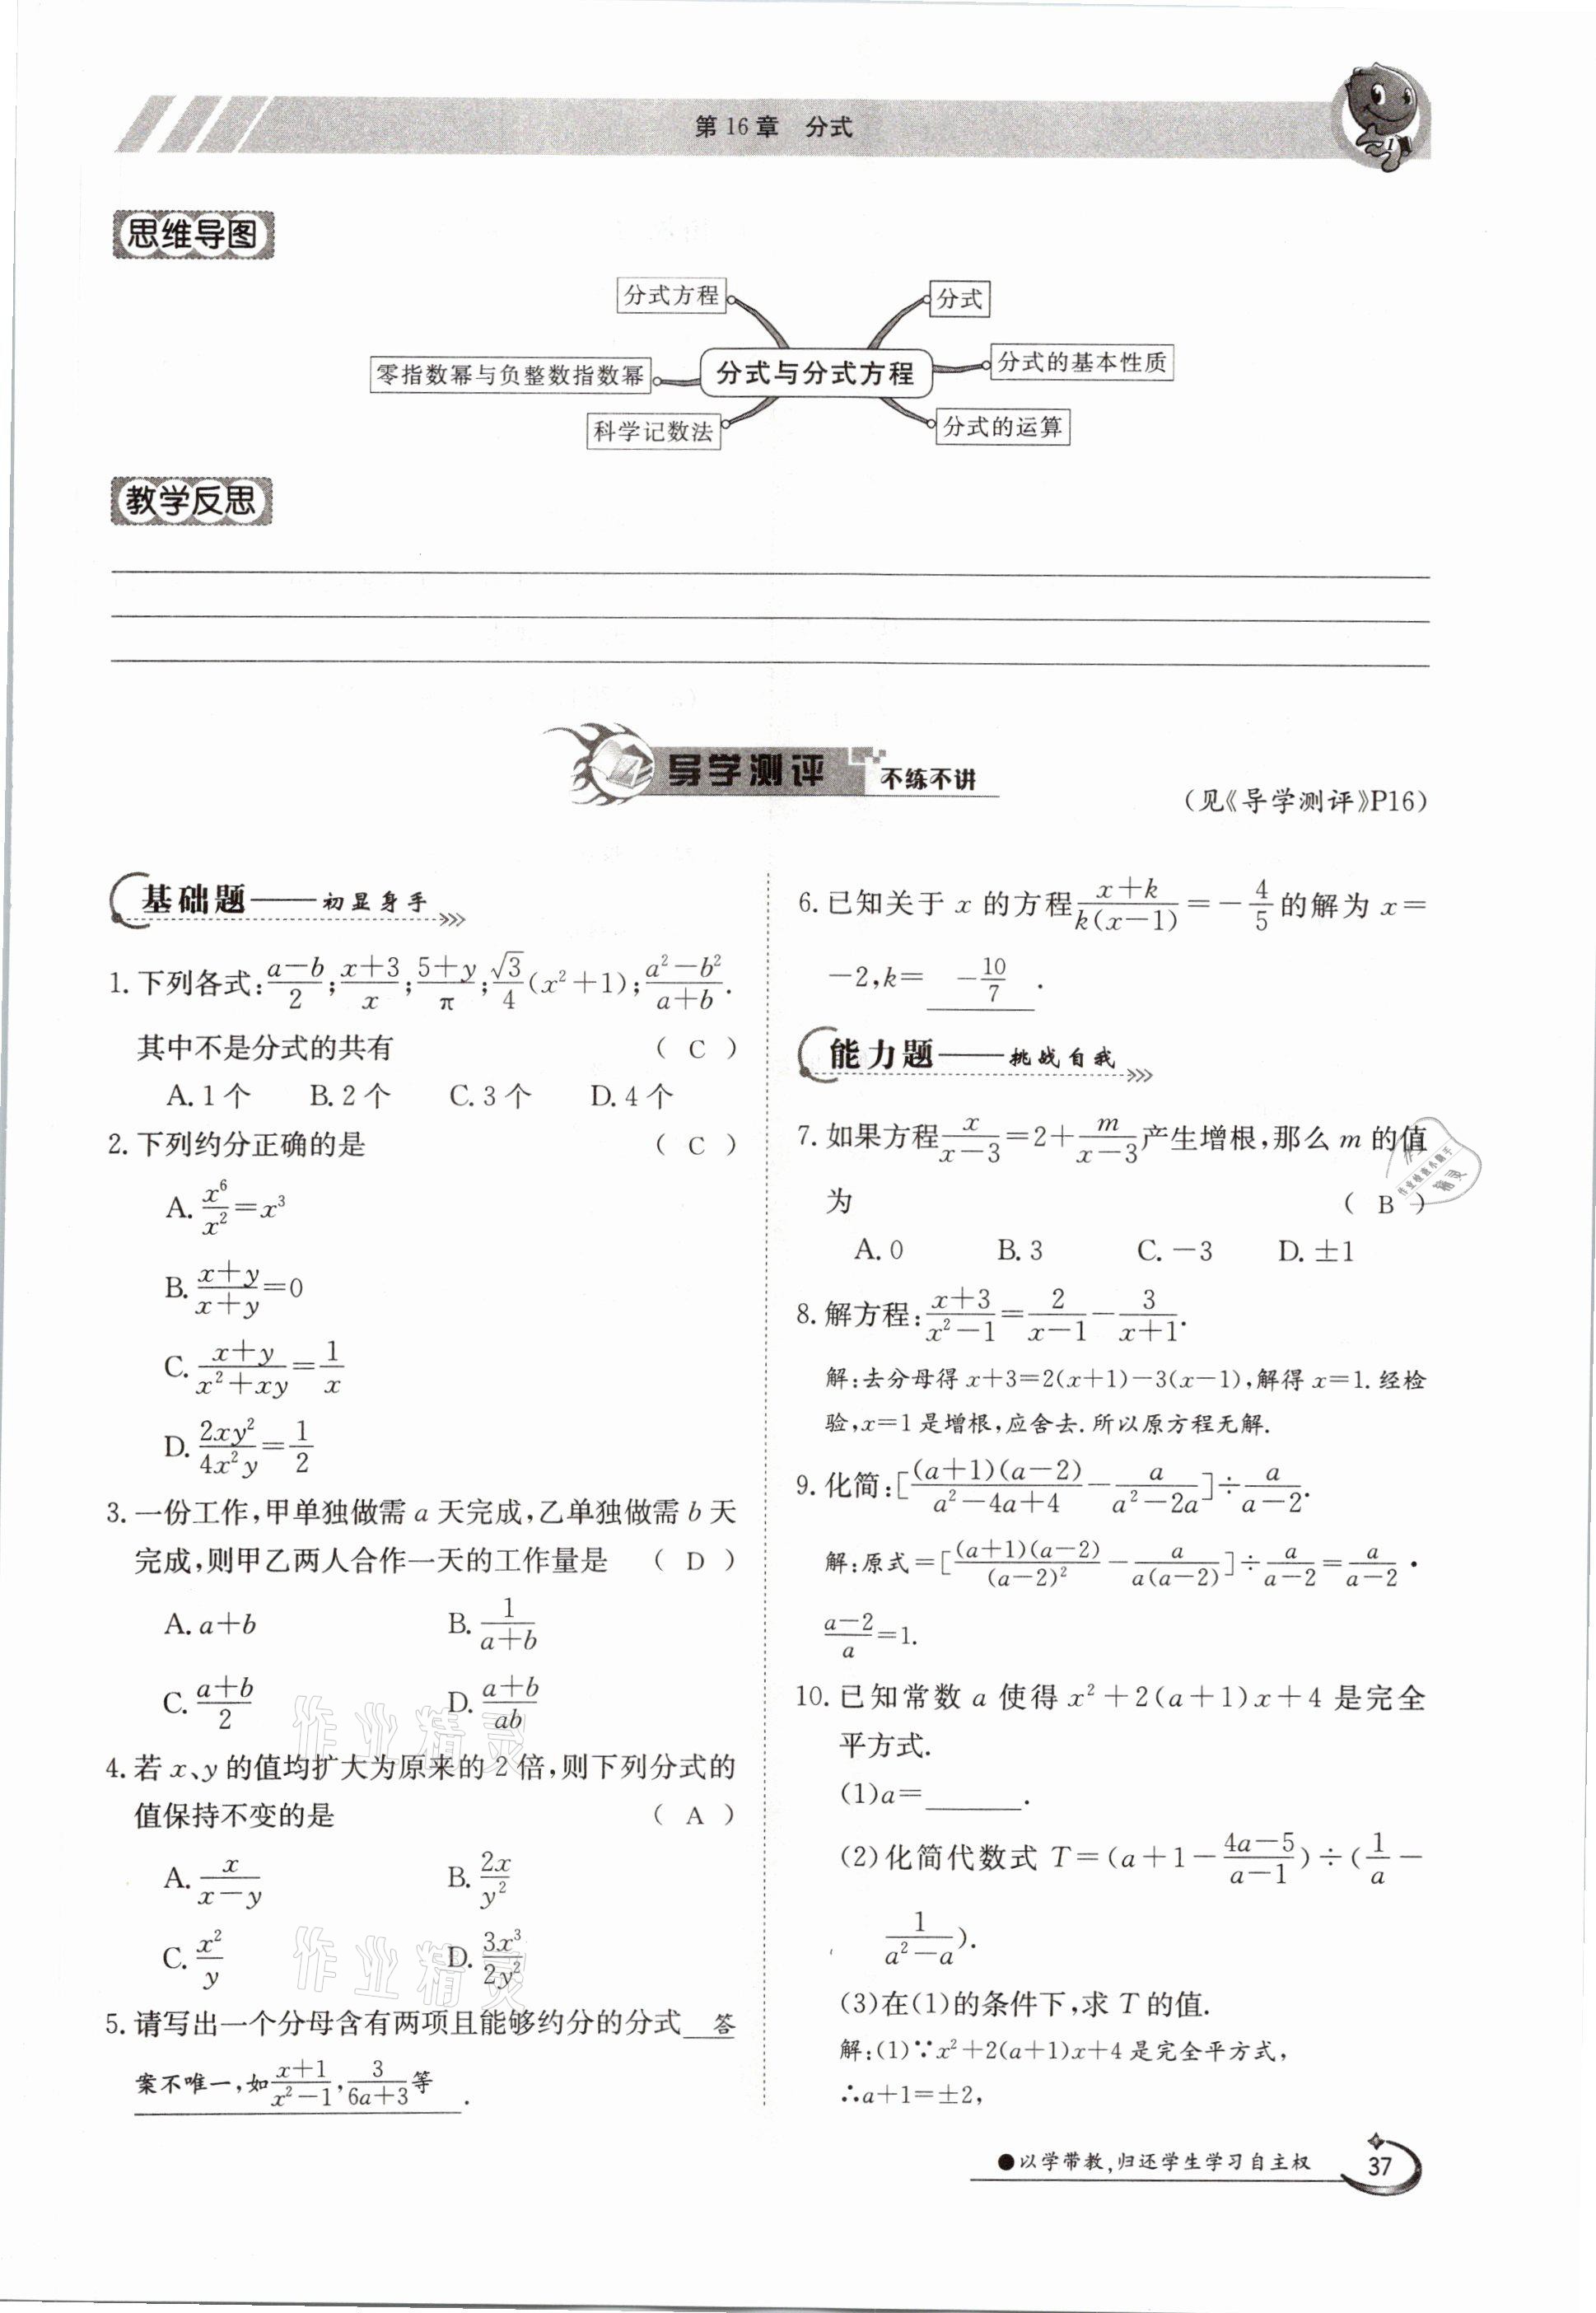 第16章 分式
思维导图
分式方程
分式
零指数幂与负整数指数幂
分式与分式方程
分式的基本性质
科学记数法
分式的运算
教学反思
导学测评 不练不讲
(见《导学测评》P16)
基础题——初显身手
1. 下列各式:\frac{a-b}{2};\frac{x+3}{x};\frac{5+y}{π};\frac{\sqrt{3}}{4}(x²+1);\frac{a²-b²}{a+b}.
其中不是分式的共有 ( C )
A. 1个 B. 2个 C. 3个 D. 4个
2. 下列约分正确的是 ( C )
A. \frac{x^6}{x^2}=x³
B. \frac{x+y}{x+y}=0
C. \frac{x+y}{x²+xy}=\frac{1}{x}
D. \frac{2xy²}{4x²y}=\frac{1}{2}
3. 一份工作,甲单独做需 a 天完成,乙单独做需 b 天
完成,则甲乙两人合作一天的工作量是 ( D )
A. a+b B. \frac{1}{a+b}
C. \frac{a+b}{2} D. \frac{a+b}{ab}
4. 若 x、y 的值均扩大为原来的 2 倍,则下列分式的
值保持不变的是 ( A )
A. \frac{x}{x-y} B. \frac{2x}{y²}
C. \frac{x²}{y} D. \frac{3x³}{2y²}
5. 请写出一个分母含有两项且能够约分的分式 答
案不唯一,如\frac{x+1}{x²-1},\frac{3}{6a+3}等.
6. 已知关于 x 的方程\frac{x+k}{k(x-1)}=-\frac{4}{5}的解为 x=
-2,k= -\frac{10}{7}.
能力题——挑战自我
7. 如果方程\frac{x}{x-3}=2+\frac{m}{x-3}产生增根,那么 m 的值
为 ( B )
A. 0 B. 3 C. -3 D. ±1
8. 解方程:\frac{x+3}{x²-1}=\frac{2}{x-1}-\frac{3}{x+1}.
解:去分母得 x+3=2(x+1)-3(x-1),解得 x=1. 经检
验,x=1 是增根,应舍去. 所以原方程无解.
9. 化简:[\frac{(a+1)(a-2)}{a²-4a+4}-\frac{a}{a²-2a}]÷\frac{a}{a-2}.
解:原式=[\frac{(a+1)(a-2)}{(a-2)²}-\frac{a}{a(a-2)}]÷\frac{a}{a-2}=\frac{a}{a-2}·
\frac{a-2}{a}=1.
10. 已知常数 a 使得 x²+2(a+1)x+4 是完全
平方式.
(1)a=______.
(2)化简代数式 T=(a+1-\frac{4a-5}{a-1})÷(\frac{1}{a}-
\frac{1}{a²-a}).
(3)在(1)的条件下,求 T 的值.
解:(1)∵x²+2(a+1)x+4 是完全平方式,
∴a+1=±2,
●以学带教,归还学生学习自主权
37
作业精灵
作业精灵
作业检查小助手
精灵